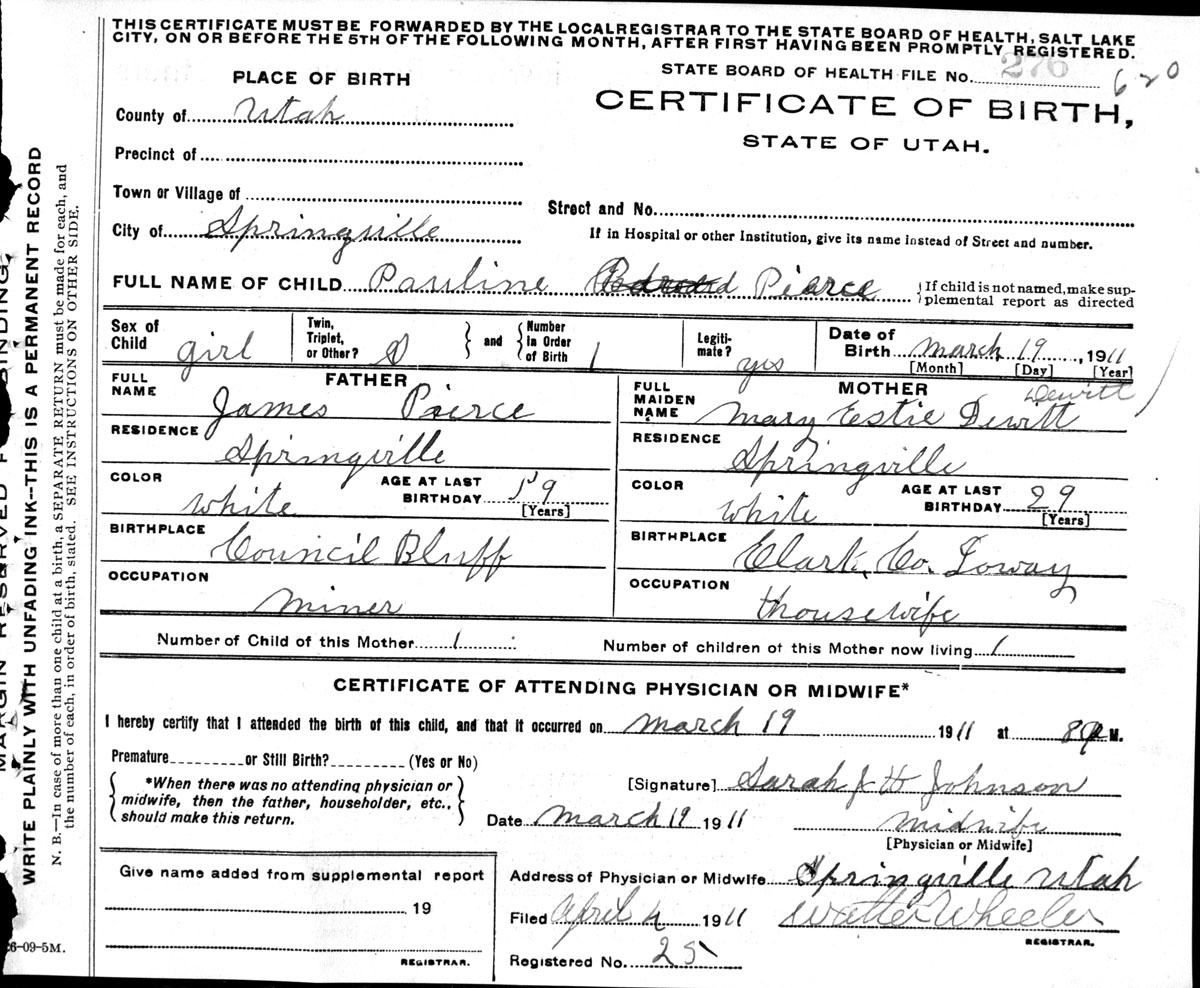 THIS CERTIFICATE MUST BE FORWARDED BY THE LOCAL REGISTRAR TO THE STATE BOARD OF HEALTH, SALT LAKE
CITY, ON OR BEFORE THE 5TH OF THE FOLLOWING MONTH, AFTER FIRST HAVING BEEN PROMPTLY REGISTERED.
PLACE OF BIRTH
STATE BOARD OF HEALTH FILE No. 276 620
County of Utah
CERTIFICATE OF BIRTH,
STATE OF UTAH.
Precinct of
Town or Village of
Street and No.
City of Springville
If in Hospital or other Institution, give its name instead of Street and number.
FULL NAME OF CHILD Pauline Pierce
If child is not named, make sup-
plemental report as directed
Sex of Child girl
Twin, Triplet, or Other?
and
Number in Order of Birth 1
Legiti-mate? yes
Date of Birth March 19, 1911
[Month] [Day] [Year]
FATHER
FULL NAME James Pierce
RESIDENCE Springville
COLOR White
AGE AT LAST BIRTHDAY 59
[Years]
BIRTHPLACE Council Bluff
OCCUPATION Miner
MOTHER
Dewitt
FULL MAIDEN NAME Mary Estie Dewitt
RESIDENCE Springville
COLOR White
AGE AT LAST BIRTHDAY 29
[Years]
BIRTHPLACE Clark Co. Ioway
OCCUPATION housewife
Number of Child of this Mother 1
Number of children of this Mother now living 1
CERTIFICATE OF ATTENDING PHYSICIAN OR MIDWIFE*
I hereby certify that I attended the birth of this child, and that it occurred on March 19 1911 at 8 P M.
Premature or Still Birth? (Yes or No)
*When there was no attending physician or
midwife, then the father, householder, etc.,
should make this return.
[Signature] Sarah J H Johnson
Date March 19 1911
Midwife
[Physician or Midwife]
Give name added from supplemental report
19
REGISTRAR.
Address of Physician or Midwife Springville Utah
Filed April 4 1911 Walter Wheeler
REGISTRAR.
Registered No. 25
MARGIN RESERVED FOR BINDING.
WRITE PLAINLY WITH UNFADING INK--THIS IS A PERMANENT RECORD
N. B.—In case of more than one child at a birth, a SEPARATE RETURN must be made for each, and
the number of each, in order of birth, stated. SEE INSTRUCTIONS ON OTHER SIDE.
6-09-5M.